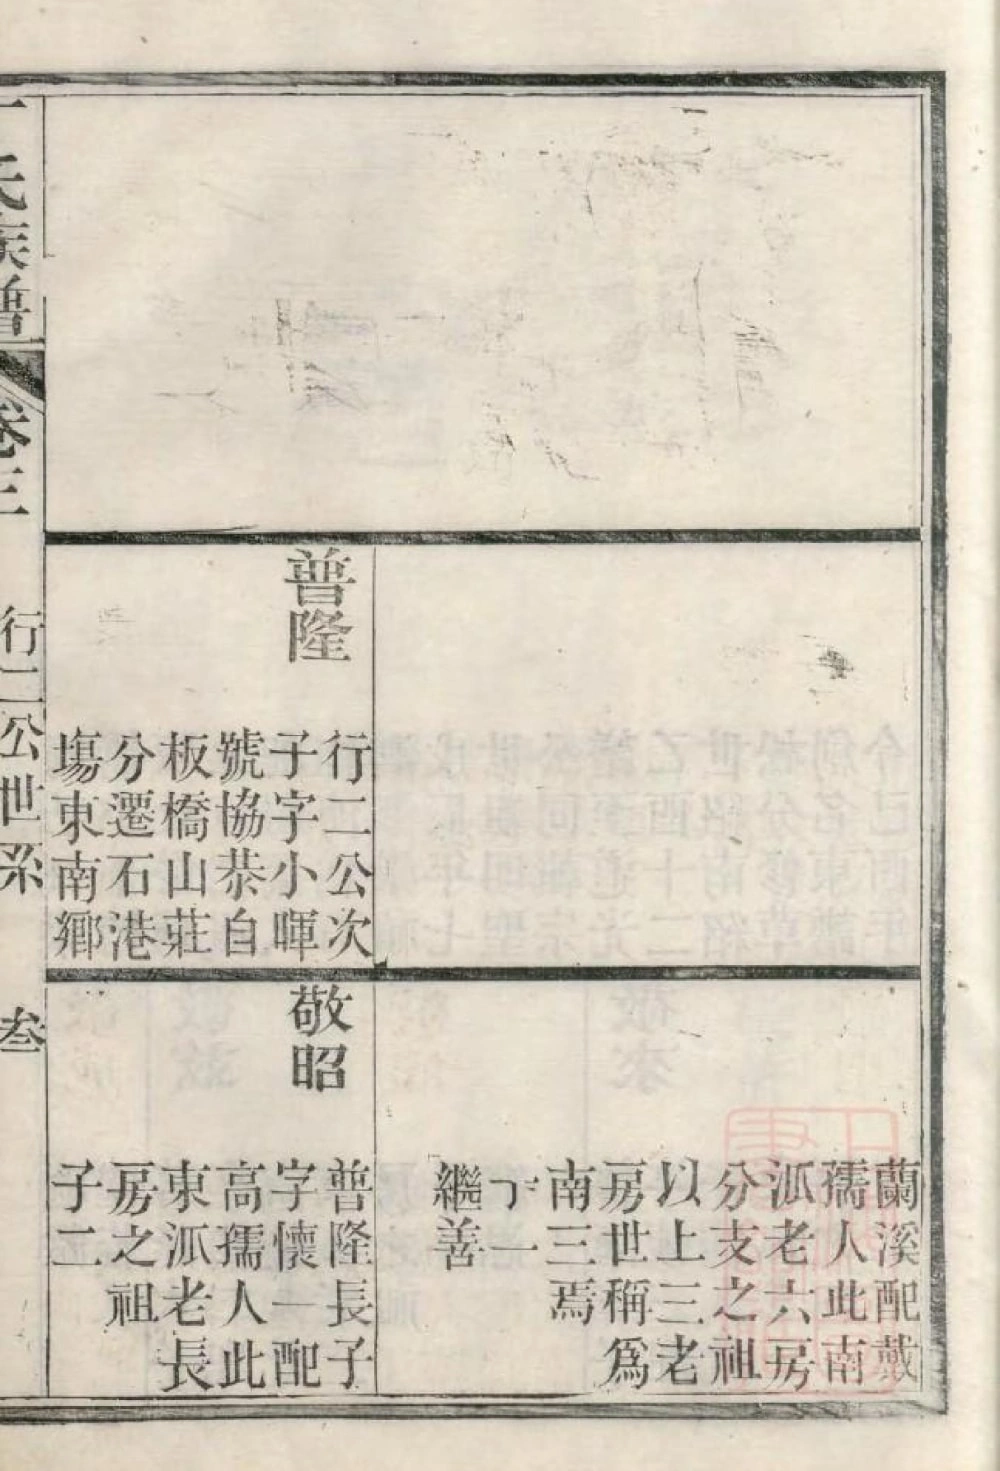 普隆
行二公次
子字小暉
號協恭自
板橋山莊
分遷石港
塲東南鄉
蘭溪配戴
孺人此南
派老六房
分支之祖
以上三老
房世稱爲
南三焉
子一
繼善
敬昭
普隆長子
字懷一配
高孺人此
東派老長
房之祖
子二
氏族譜
卷三
行二公世系
叁